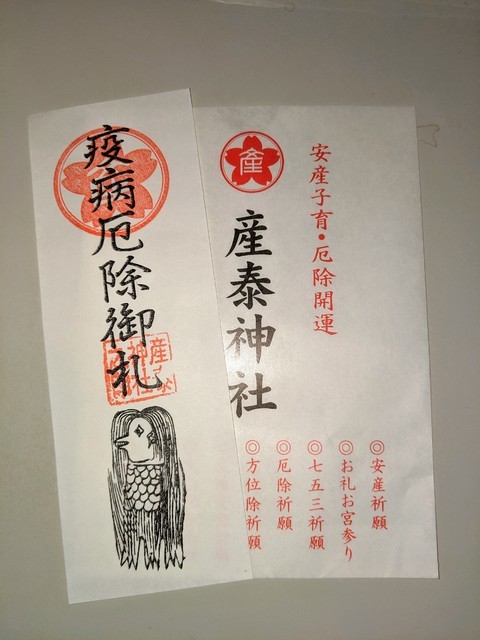 疫病厄除御札
産
安産子育・厄除開運
産泰神社
◎安産祈願
◎お礼お宮参り
◎七五三祈願
◎厄除祈願
◎方位除祈願